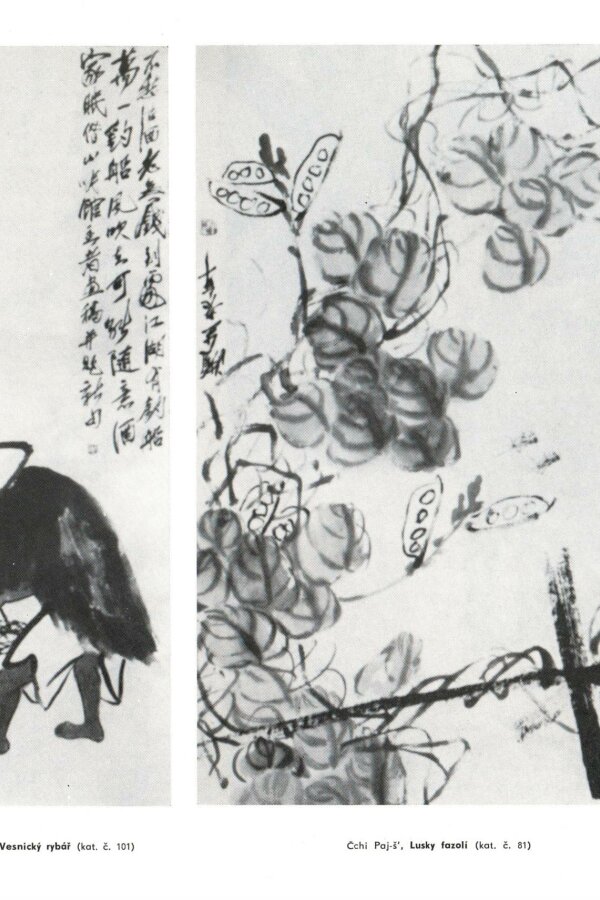 不愁沽酒老無錢到處江湖有釣船
萬一釣船風吹去可能隨意酒
家眠借山吟館主者畫稿并題新句
Vesnický rybář (kat. č. 101)
Čchi Paj-š’, Lusky fazolí (kat. č. 81)